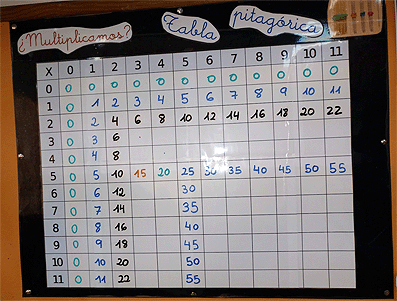 ¿Multiplicamos? Tabla pitagórica
X 0 1 2 3 4 5 6 7 8 9 10 11
0 0 0 0 0 0 0 0 0 0 0 0 0
1 0 1 2 3 4 5 6 7 8 9 10 11
2 0 2 4 6 8 10 12 14 16 18 20 22
3 0 3 6
4 0 4 8
5 0 5 10 15 20 25 30 35 40 45 50 55
6 0 6 12 30
7 0 7 14 35
8 0 8 16 40
9 0 9 18 45
10 0 10 20 50
11 0 11 22 55